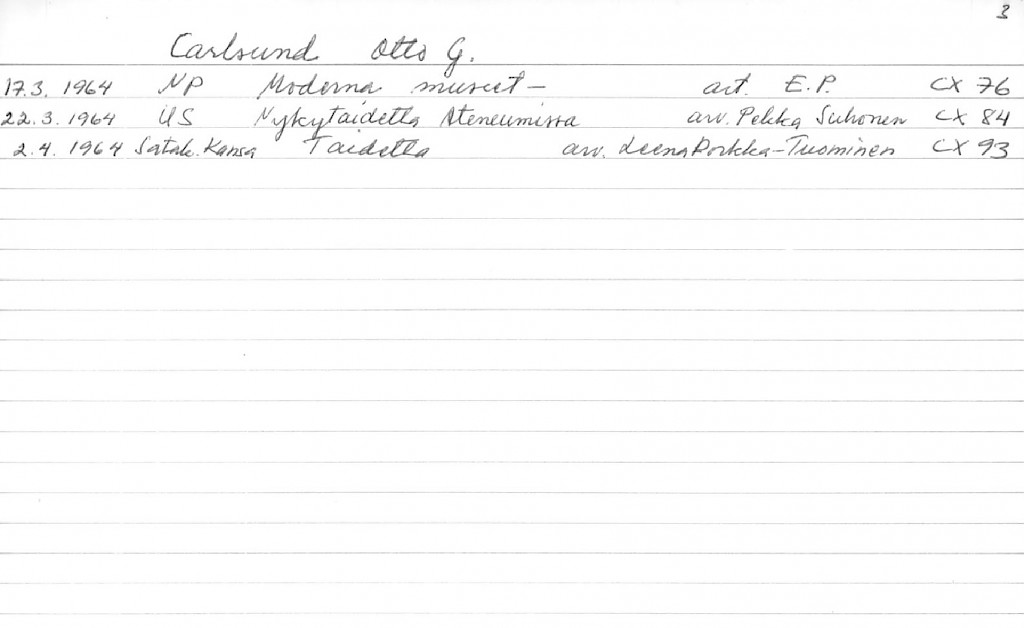 3
Carlsund Otto G.
17.3. 1964 NP Moderna museet — art. E.P. CX 76
22.3. 1964 US Nykytaidetta Ateneumissa arv. Pekka Suhonen CX 84
2.4. 1964 Satak. Kansa Taidetta arv. Leena Porkka-Tuominen CX 93